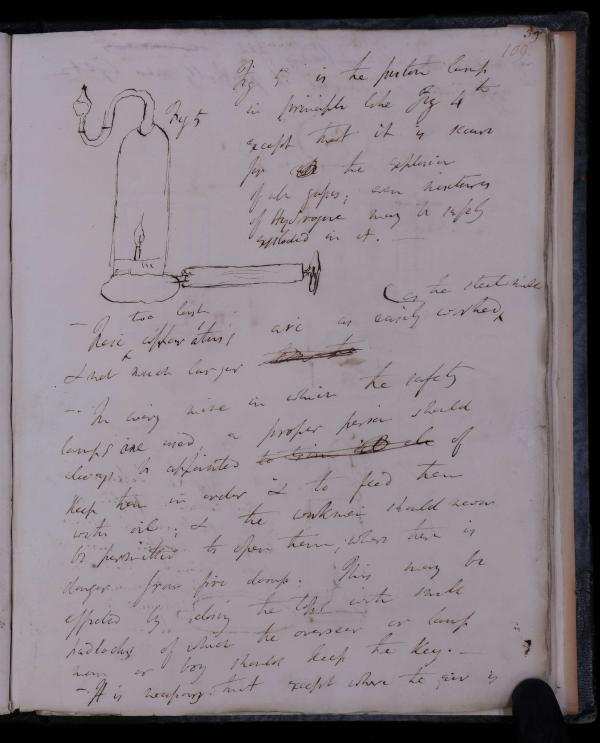 39
109
Fig 5
Fig 5 is the piston lamp
in principle like Fig 4th
except that it is secure
for the explosion
of all gases; even mixtures
of Hydrogene may be safely
exploded in it. —
as the steel mills
too last
— These apparatus's are as easily worked
& not much larger
— In every mine in which the safety
lamps are used, a proper person should
always be appointed of
keep them in order & to feed them
with oil; & the workmen should never
be permitted to open them, where there is
danger from fire damp. This may be
effected by the with small
padlocks of which the overseer or lamp
man or boy should keep the key. —
— It is necessary that except where the air is